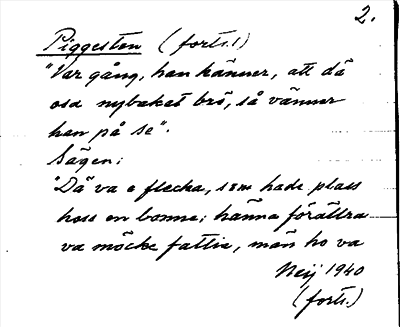 2.
Piggesten (forts.)
"Var gång, han känner, att dä
osa nybakat brö, så vänner
han på se".
Sägen:
"Dä va e flecka, som hade plass
hoss en bonne; hänna förättra
va möcke fattia, män ho va
Neij 1940
(forts.)